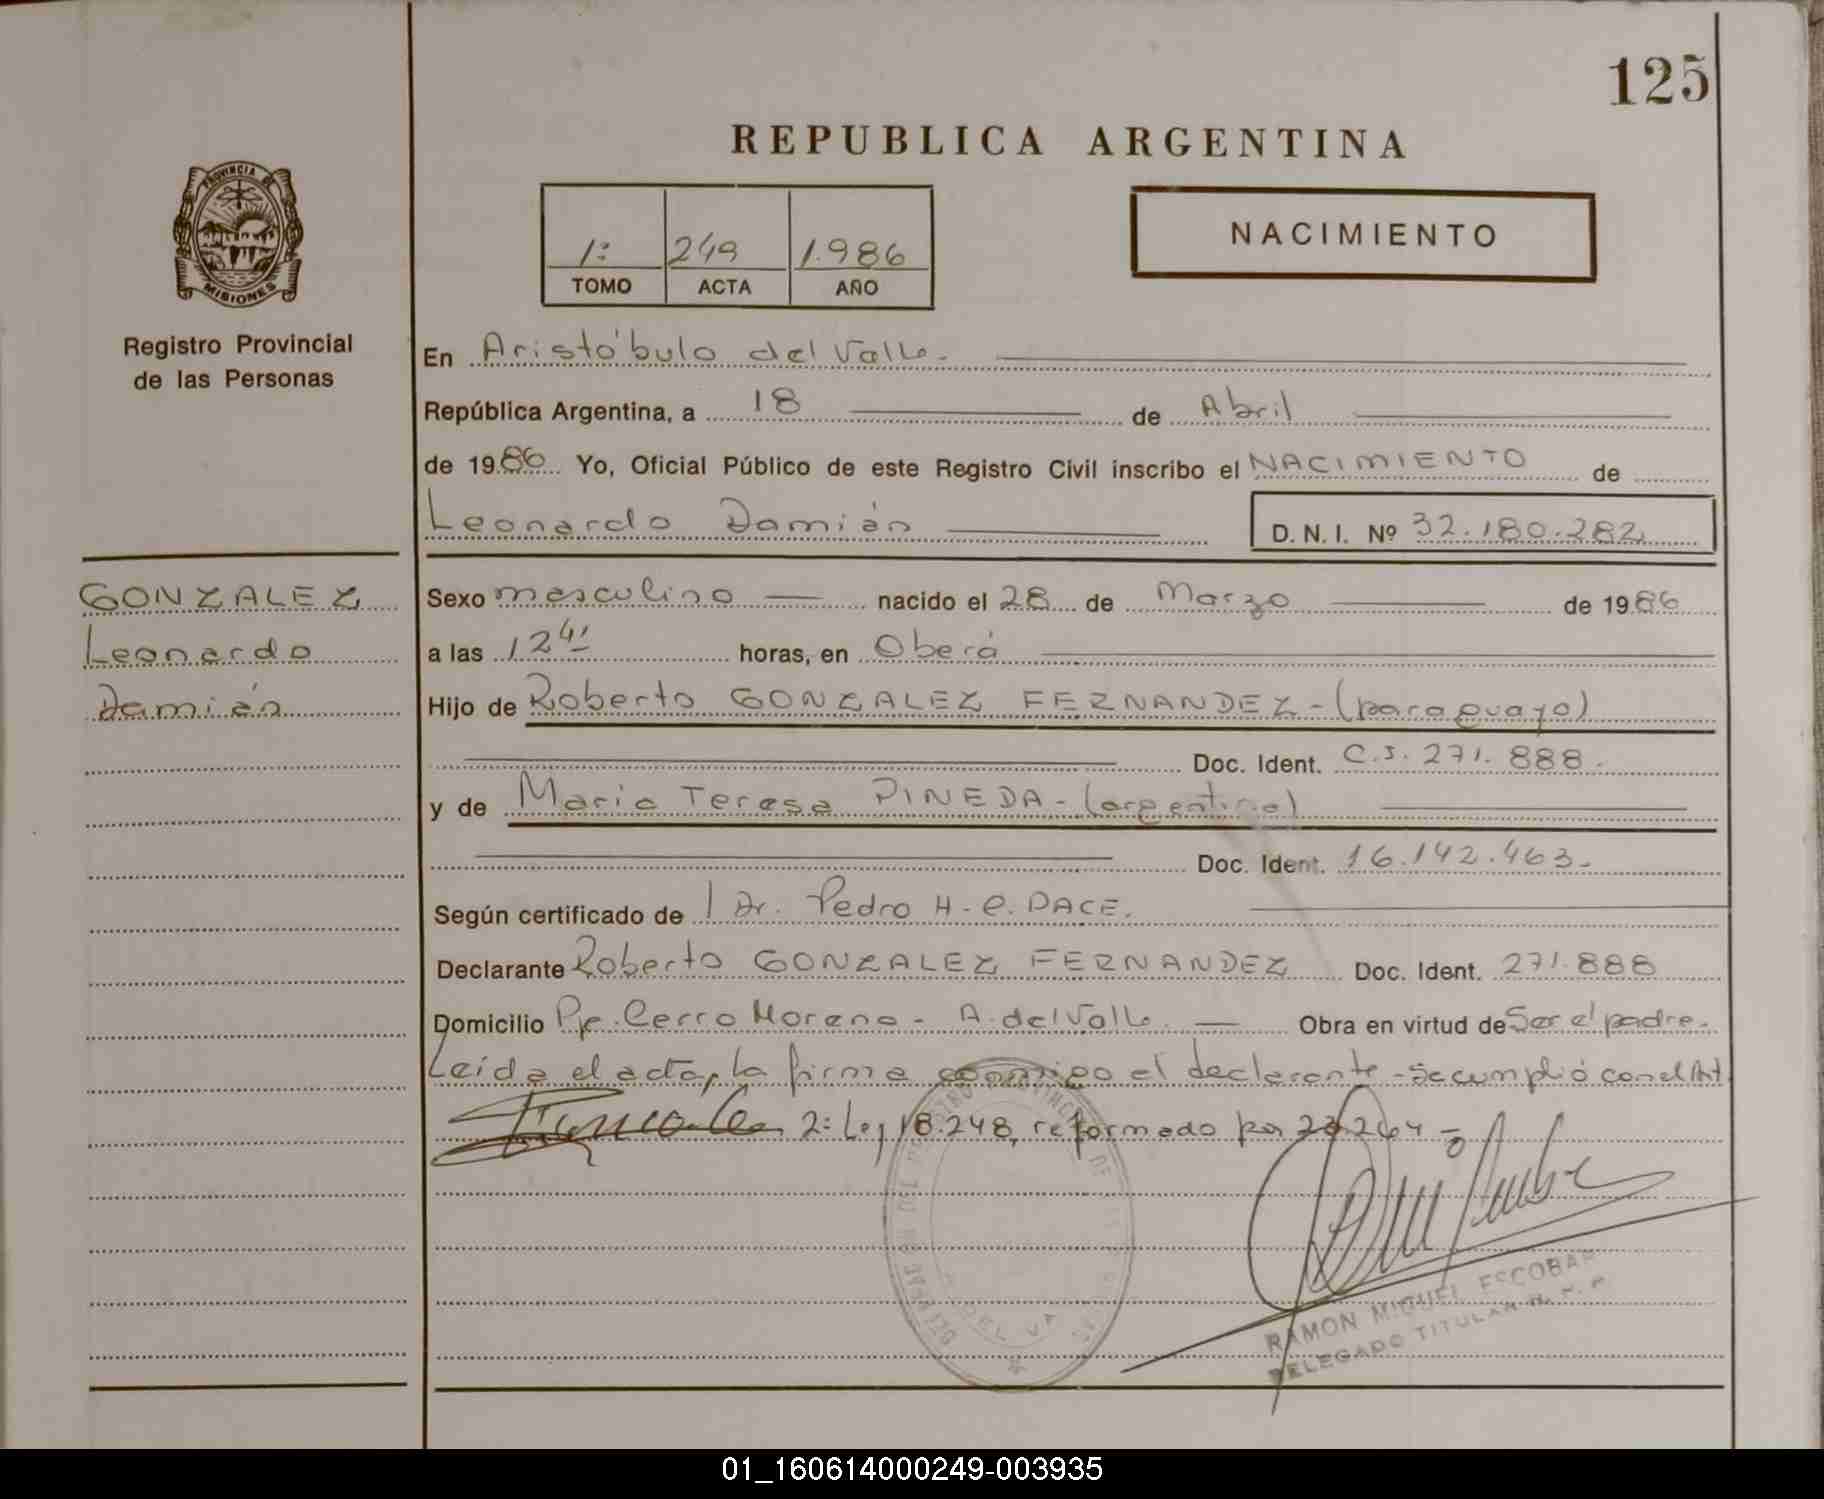 125
REPUBLICA ARGENTINA
PROVINCIA DE
MISIONES
Registro Provincial
de las Personas
1º 249 1.986
TOMO ACTA AÑO
NACIMIENTO
En Aristóbulo del Valle.
República Argentina, a 18 de Abril
de 1986 Yo, Oficial Público de este Registro Civil inscribo el NACIMIENTO de
Leonardo Damián D. N. I. Nº 32.180.282
GONZALEZ
Leonardo
Damián
Sexo masculino nacido el 28 de Marzo de 1986
a las 12 horas, en Oberá
Hijo de Roberto GONZALEZ FERNANDEZ - (paraguayo)
Doc. Ident. C.I. 271.888.
y de Maria Teresa PINEDA - (argentina)
Doc. Ident. 16.142.463.-
Según certificado de Dr. Pedro H. PACE.
Declarante Roberto GONZALEZ FERNANDEZ Doc. Ident. 271.888
Domicilio Pje. Cerro Moreno - A. del Valle Obra en virtud de Ser el padre.
Leída el acta, la firma conmigo el declarante - Se cumplió con el Art
2º Ley 18.248, reformado por 23.264 -
RAMON MIGUEL ESCOBAR
DELEGADO TITULAR
01_160614000249-003935